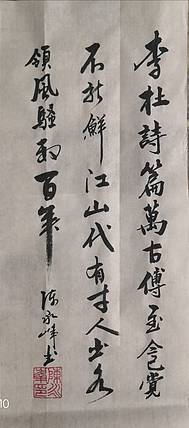 李杜詩篇萬古傳至今已覺
不新鮮江山代有才人出各
領風騷數百年
10